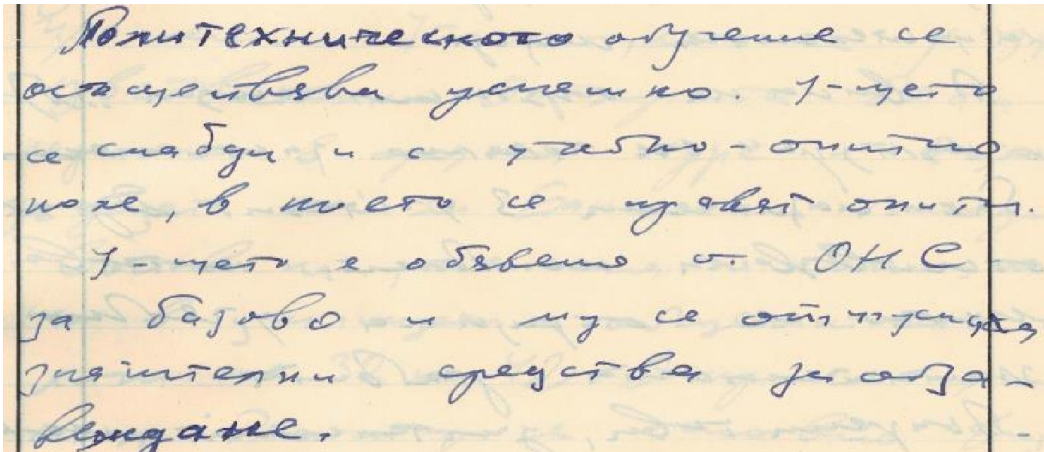 Политехническото обучение се
осъществява успешно. У-щето
се снабди и с учебно-опитно
поле, в което се правят опити.
У-щето е обявено от ОНС
за базово и му се отпускат
значителни средства за обза-
веждане.